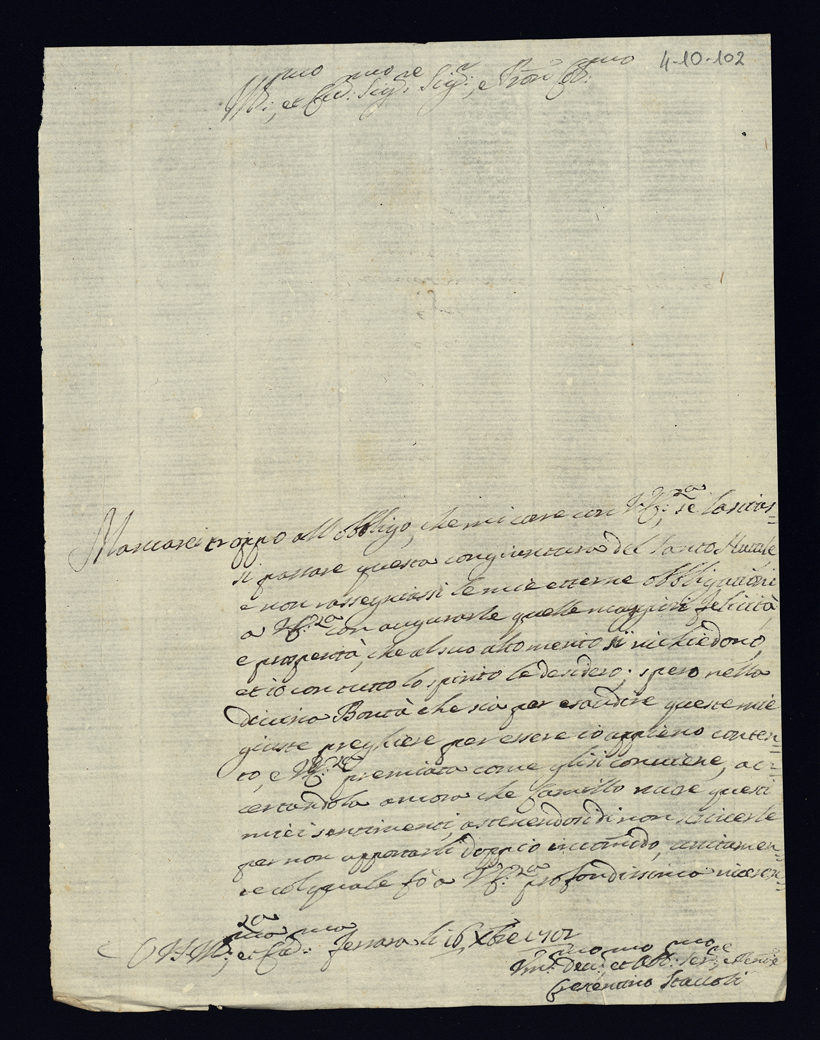 4-10-102
Ill:mo, et Ecc:mo Sig:re Sig:r, e Pron Col:mo
Mancarei troppo all'obbligo, che mi corre con V.E:za, se lascias=
si passare questa congiuntura del Santo Natale
e non rassegniassi le mie etterne obbligazioni
a V.E:za con augurarle quelle maggiori felicità,
e prosperità, che al suo alto merito si richiedono,
et io con tutto lo spirito le desidero; spero nella
divina Bontà che sia per esaudire queste mie
giuste preghiere per essere io appieno conten=
to, e V.E:za premiata come gli si conviene, ac=
certandola ancora che Camillo nuare questi
miei sentimenti, astenendosi di non scriverle
per non apportarli doppio incomodo, unitamen=
te col quale fò a V.E:za profondissima riveren=
za
D V.S Ill:ma, et Ecc:ma Ferrara li 16 Xbre 1702
Um:mo Dev:mo, et Obb:mo Ser:re
Ferentino Staccoli